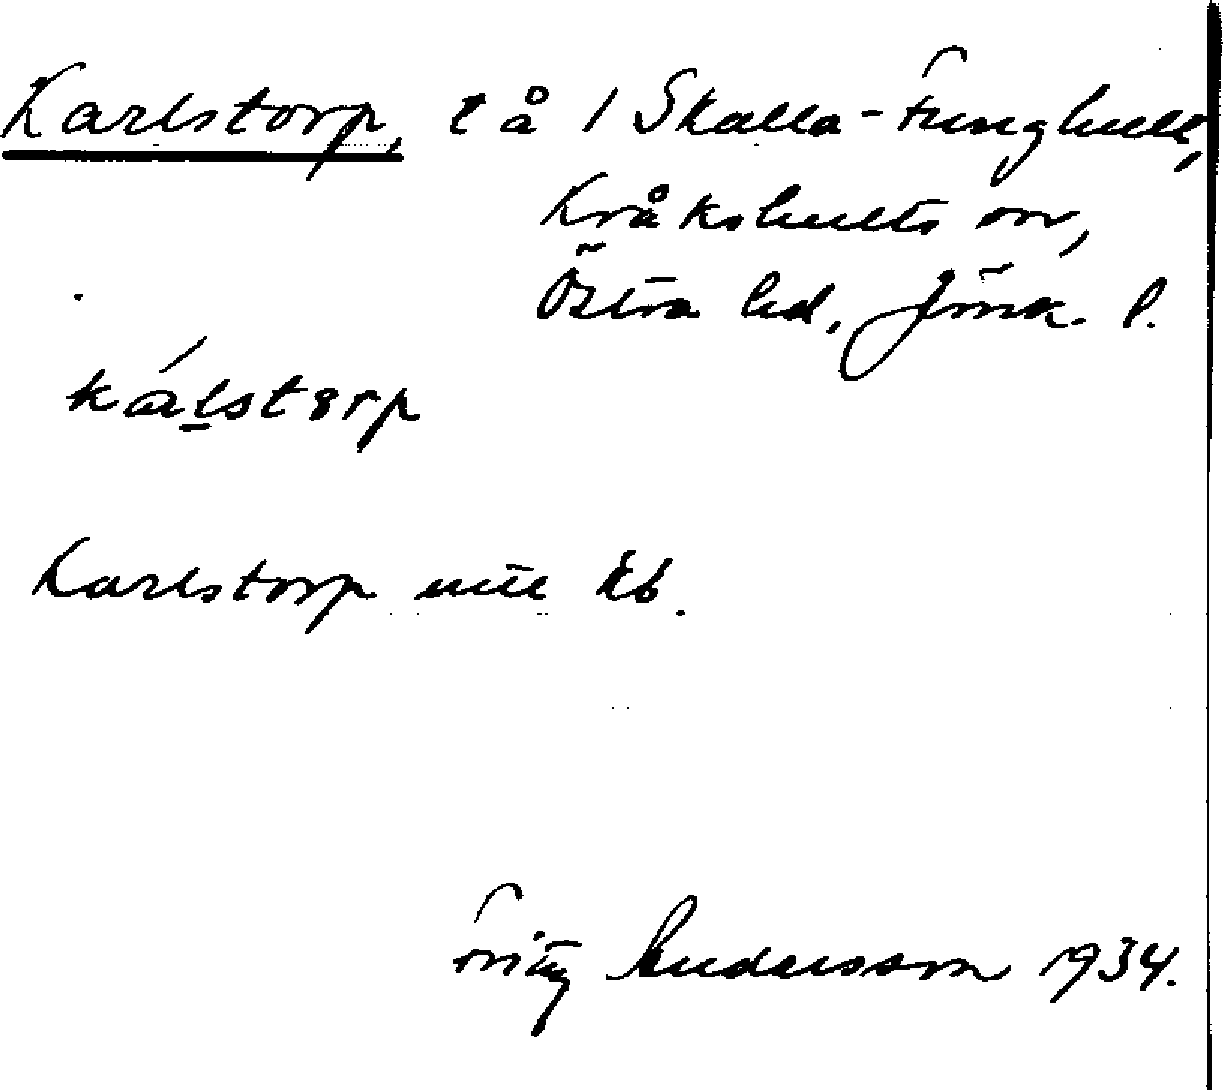 Karlstorp, t å 1 Skalla-Funghult,
Kråkshults sn,
Östra hd, Jönk. l.
kálstȣrp
Karlstorp mtl Kb.
Fritz Andersson 1934.